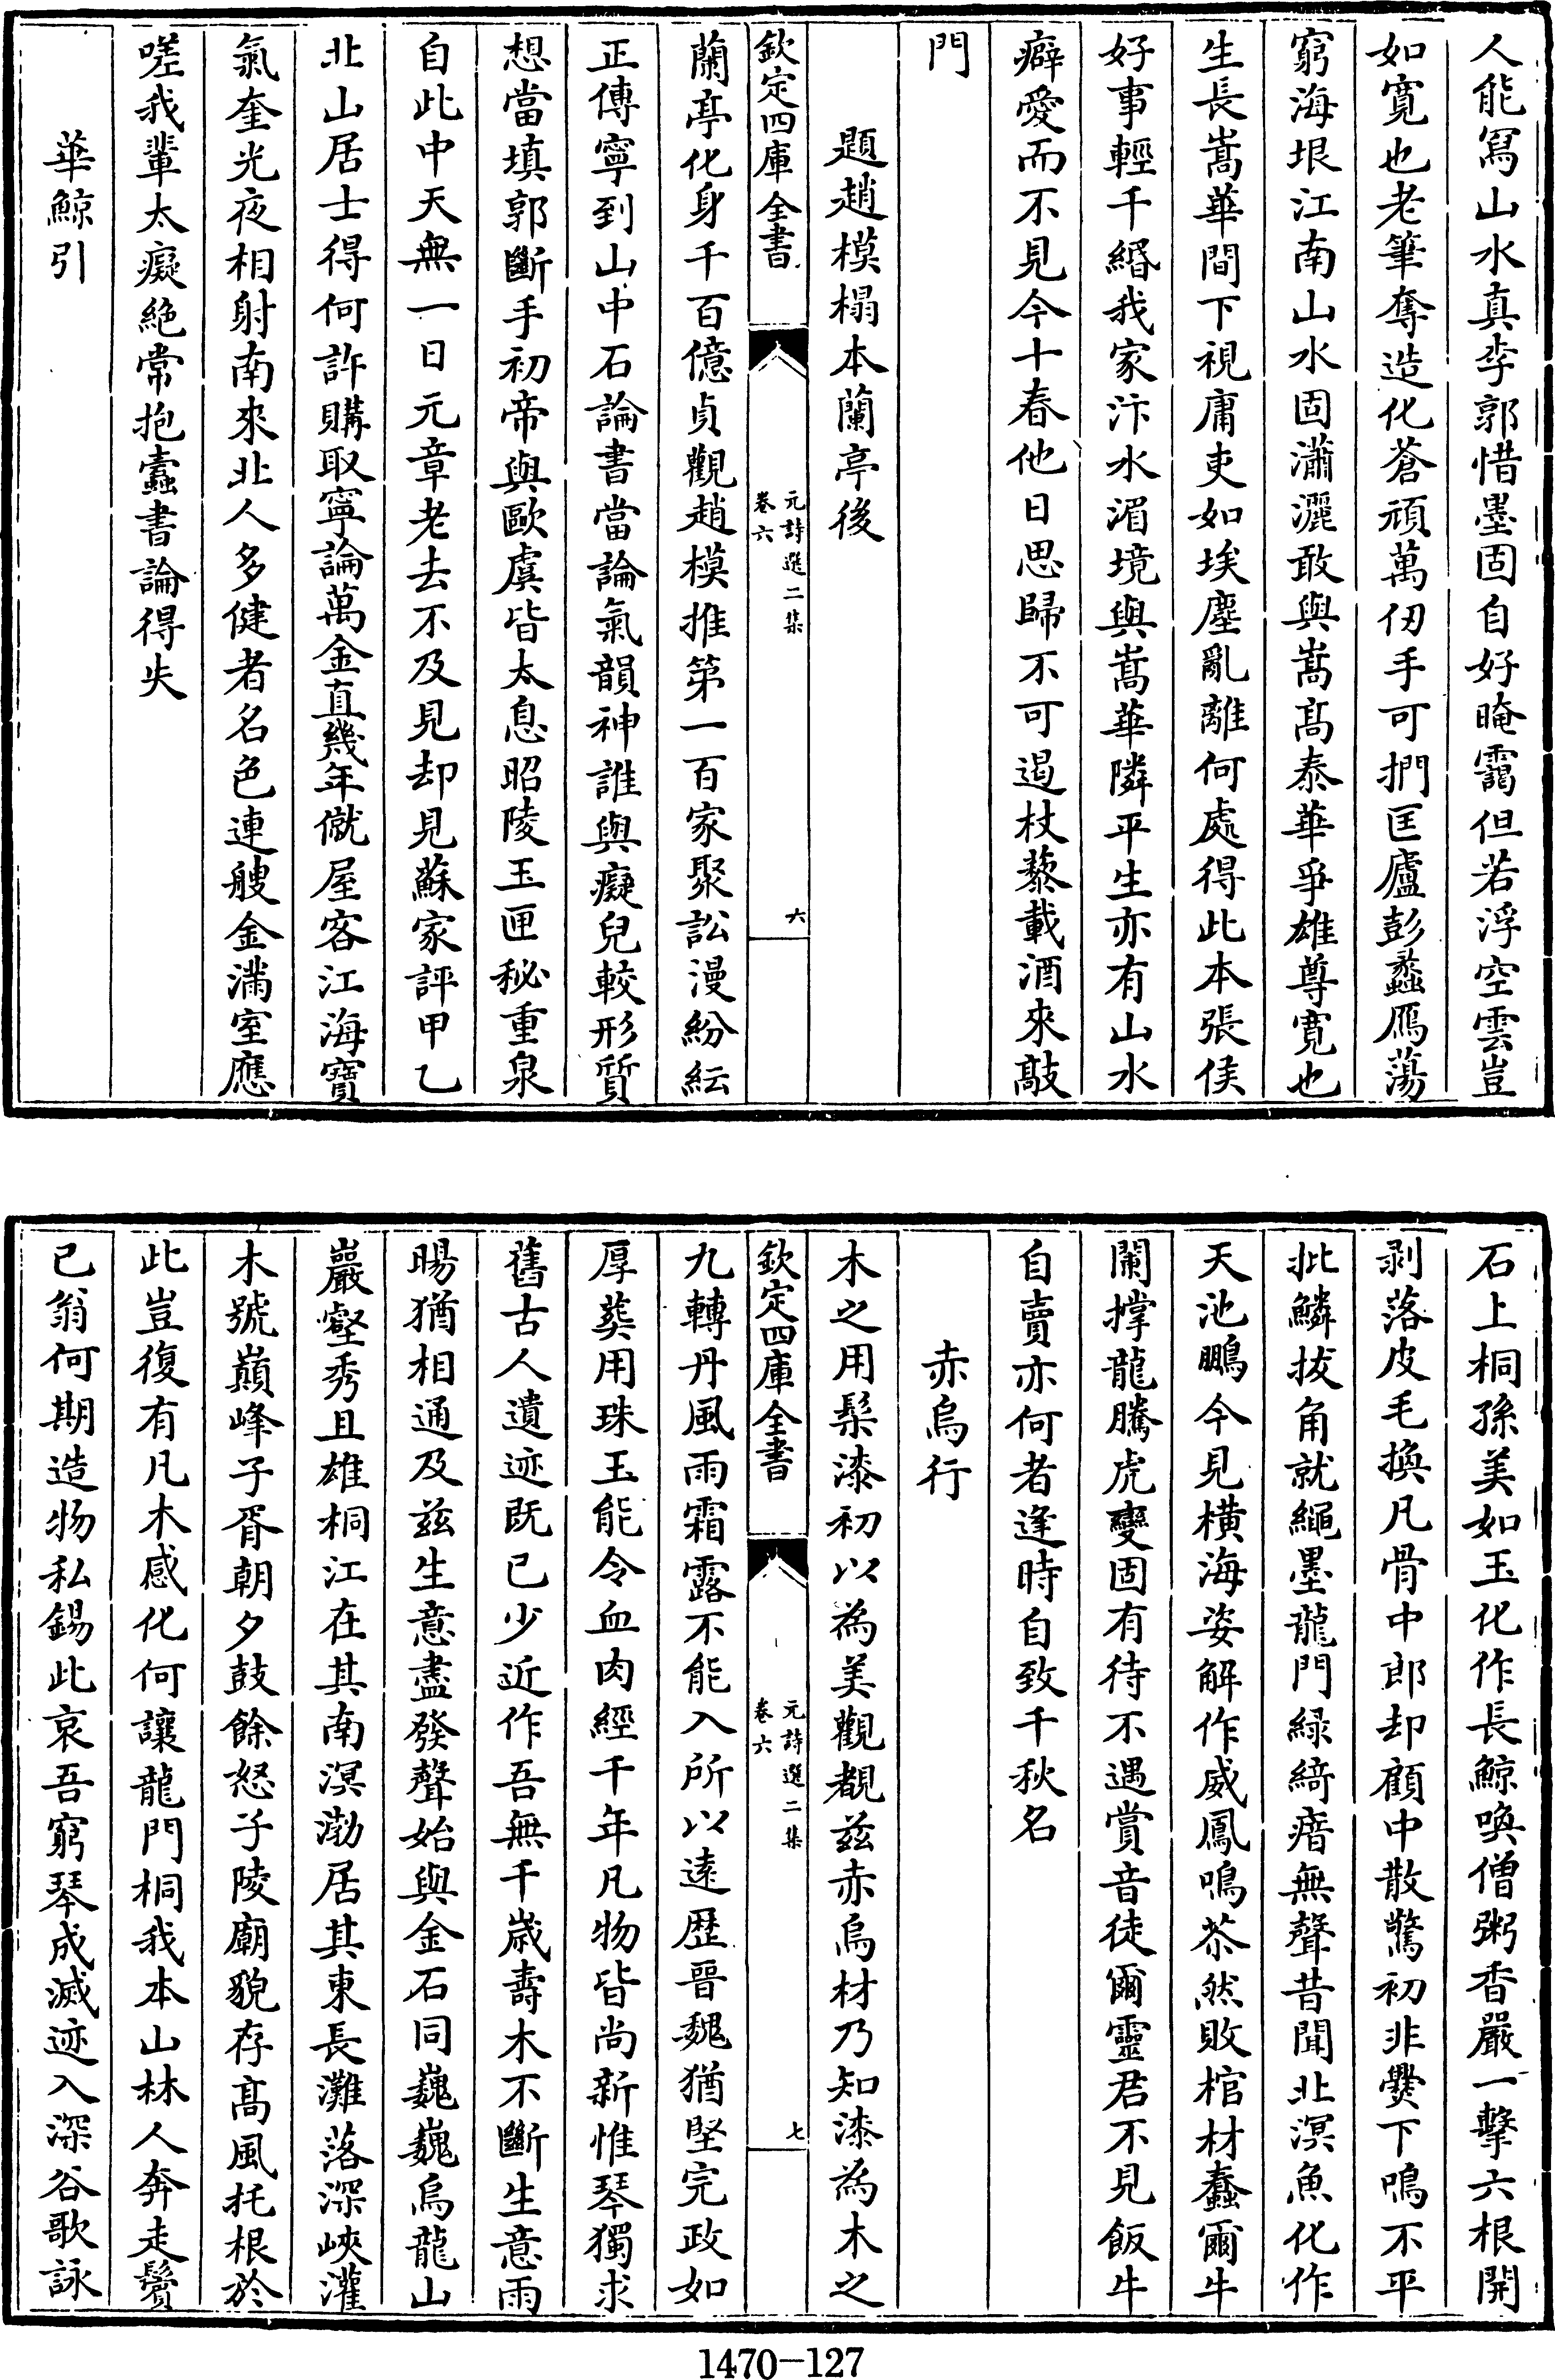 人能冩山水真李郭惜墨固自好晻靄但若浮空雲豈
如寛也老筆奪造化蒼頑萬仞手可捫匡廬彭蠡鴈蕩
窮海垠江南山水固瀟灑敢與嵩髙泰華爭雄尊寛也
生長嵩華間下視庸吏如埃塵亂離何處得此本張侯
好事輕千緡我家汴水湄境與嵩華隣平生亦有山水
癖愛而不見今十春他日思歸不可遏杖藜載酒來敲
門
題趙模榻本蘭亭後
欽定四庫全書
元詩選二集
卷六
六
蘭亭化身千百億貞觀趙模推第一百家聚訟漫紛紜
正傳寧到山中石論書當論氣韻神誰與癡兒較形質
想當填郭斷手初帝與歐虞皆太息昭陵玉匣秘重泉
自此中天無一日元章老去不及見却見蘇家評甲乙
北山居士得何許購取寧論萬金直幾年僦屋客江海寶
氣奎光夜相射南來北人多健者名色連艘金滿室應
嗟我輩太癡絶常抱蠹書論得失
華鯨引
石上桐孫美如玉化作長鯨喚僧粥香嚴一擊六根開
剥落皮毛換凡骨中郎却顧中散驚初非爨下鳴不平
批鱗拔角就繩墨龍門緑綺瘖無聲昔聞北溟魚化作
天池鵬今見橫海姿解作威鳳鳴苶然敗棺材蠢爾牛
闌撑龍騰虎變固有待不遇賞音徒爾靈君不見飯牛
自賣亦何者逢時自致千秋名
赤烏行
木之用髹漆初以為美觀覩兹赤烏材乃知漆為木之
欽定四庫全書
元詩選二集
卷六
七
九轉丹風雨霜露不能入所以逺歴晉魏猶堅完政如
厚葬用珠玉能令血肉經千年凡物皆尚新惟琴獨求
舊古人遺迹既已少近作吾無千嵗壽木不斷生意雨
暘猶相通及兹生意盡發聲始與金石同巍巍烏龍山
巖壑秀且雄桐江在其南溟渤居其東長灘落深峽灌
木號巔峰子胥朝夕鼓餘怒子陵廟貌存髙風托根於
此豈復有凡木感化何讓龍門桐我本山林人奔走鬢
已翁何期造物私錫此哀吾窮琴成滅迹入深谷歌詠
1470-127